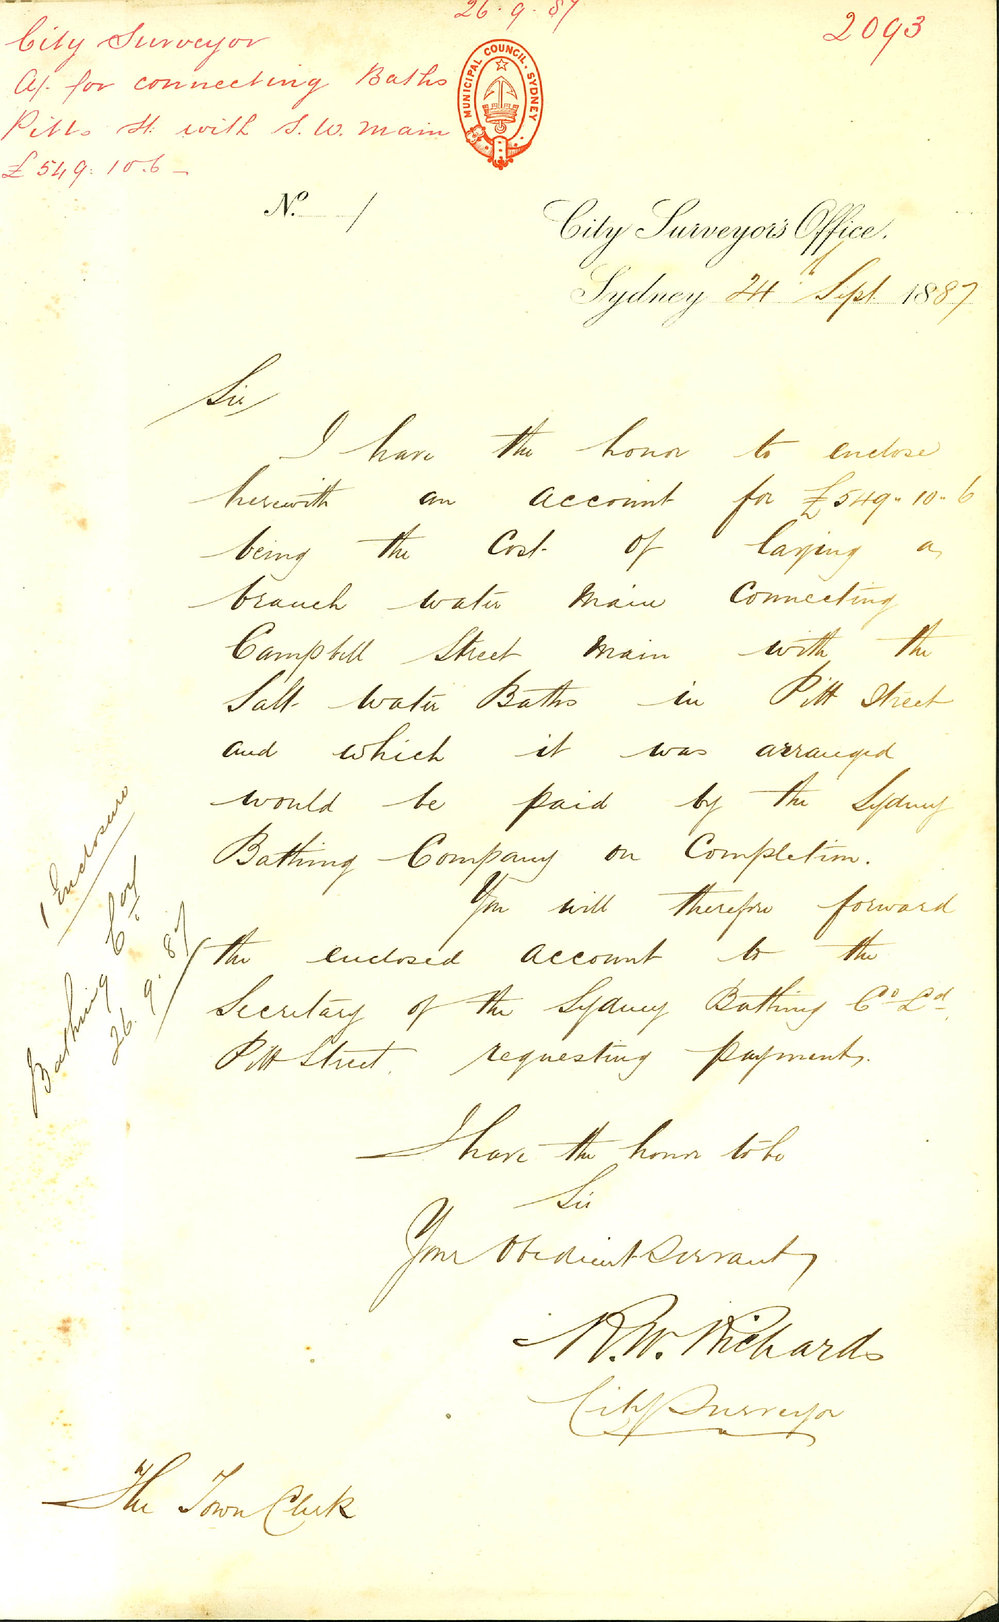 26.9.87
2093
City Surveyor
a/. for connecting Baths
Pitts St. with S.W. Main
£549.10.6
MUNICIPAL COUNCIL. SYDNEY
No. /
City Surveyor's Office.
Sydney 24th Sept 1887
Sir
I have the honor to enclose
herewith an account for £549.10.6
being the Cost of laying a
branch water Main Connecting
Campbell Street Main with the
Salt water Baths in Pitt Street
and which it was arranged
would be paid by the Sydney
Bathing Company on Completion.
You will therefore forward
the enclosed account to the
Secretary of the Sydney Bathing Co Ld.
Pitt Street. requesting payment.
I have the honor to be
Sir
Your Obedient Servant
R.W. Richards
City Surveyor
The Town Clerk
1 Enclosure
Bathing Coy
26.9.87